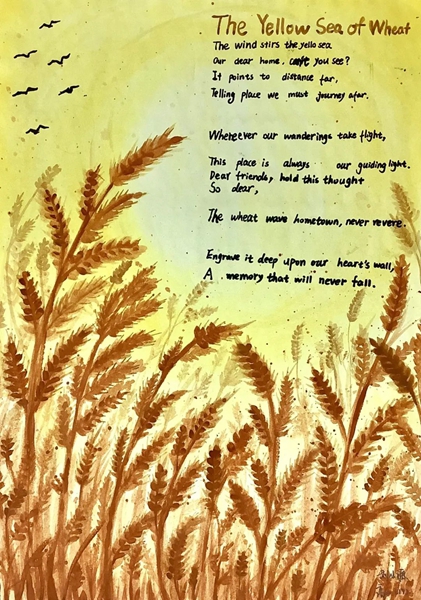 The Yellow Sea of Wheat
The wind stirs the yello sea
Our dear home, can't you see?
It points to distance far,
Telling place we must journey afar.
Whereever our wanderings take flight,
This place is always our guiding light.
Dear friends, hold this thought
So dear,
The wheat wave hometown, never revere.
Engrave it deep upon our heart's wall,
A memory that will never fall.